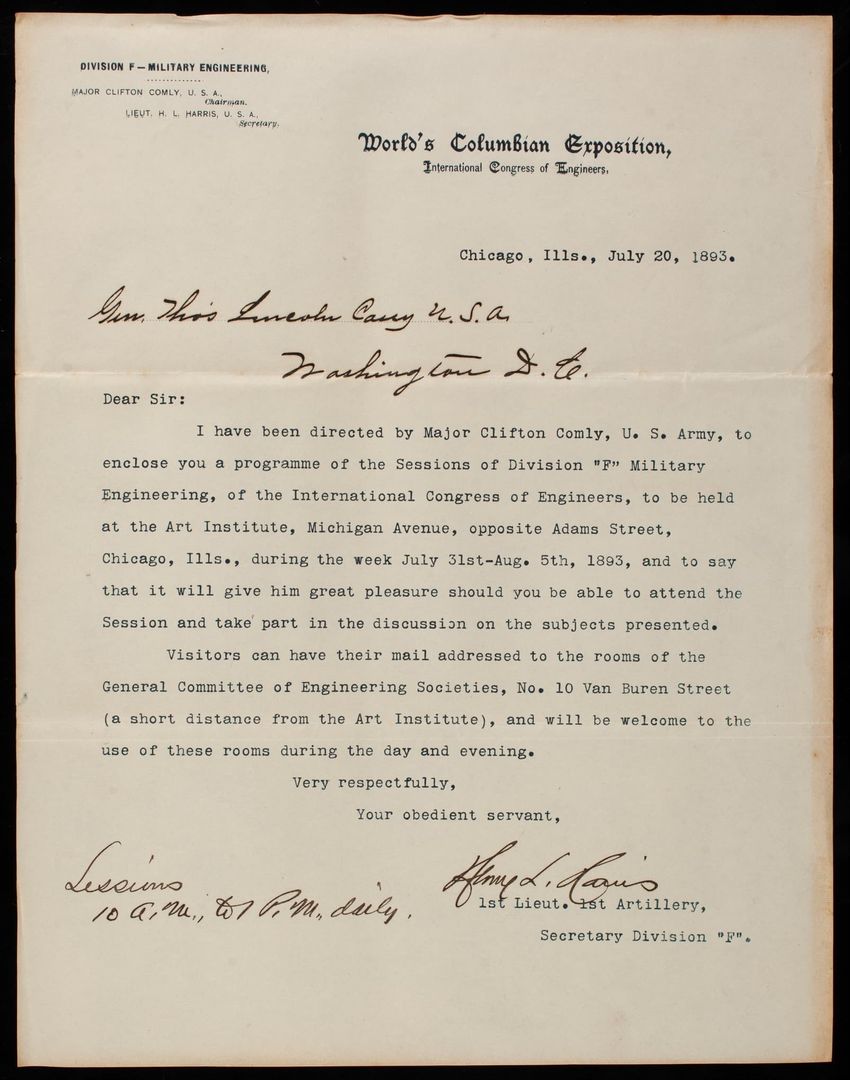 DIVISION F—MILITARY ENGINEERING,
MAJOR CLIFTON COMLY, U. S. A.,
Chairman.
LIEUT. H. L. HARRIS, U. S. A.,
Secretary.
World's Columbian Exposition,
International Congress of Engineers,
Chicago, Ills., July 20, 1893.
Gen. Tho's Lincoln Casey U.S.A.
Washington D.C.
Dear Sir:
I have been directed by Major Clifton Comly, U. S. Army, to
enclose you a programme of the Sessions of Division "F" Military
Engineering, of the International Congress of Engineers, to be held
at the Art Institute, Michigan Avenue, opposite Adams Street,
Chicago, Ills., during the week July 31st-Aug. 5th, 1893, and to say
that it will give him great pleasure should you be able to attend the
Session and take part in the discussion on the subjects presented.
Visitors can have their mail addressed to the rooms of the
General Committee of Engineering Societies, No. 10 Van Buren Street
(a short distance from the Art Institute), and will be welcome to the
use of these rooms during the day and evening.
Very respectfully,
Your obedient servant,
Henry L. Harris
1st Lieut. 1st Artillery,
Secretary Division "F".
Sessions
10 A.M., to 1 P.M., daily.